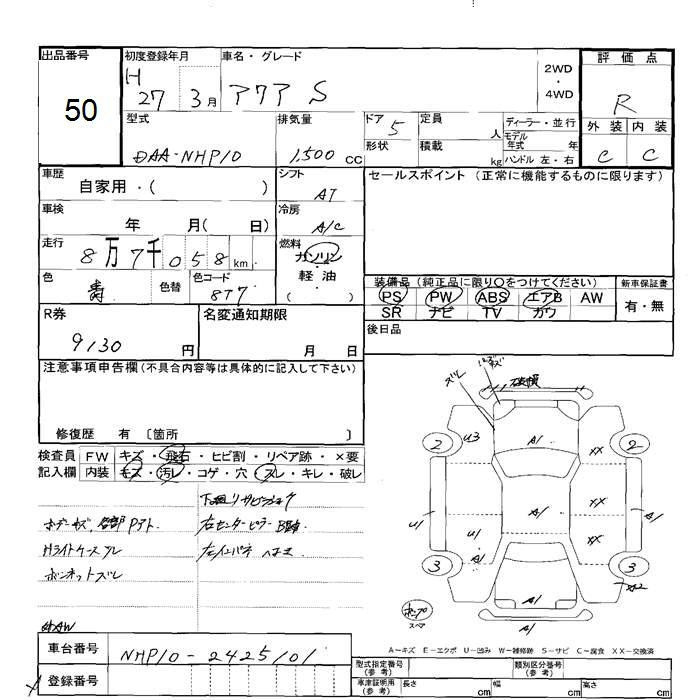 出品番号
50
初度登録年月
H 27 3月
車名・グレード
アクア S
2WD
・
4WD
評価点
R
外装 内装
C C
型式
DAA-NHP10
排気量
1,500 CC
ドア 5
形状
定員 人
積載 kg
ディーラー・並行
モデル年式 年
ハンドル 左・右
車歴
自家用・( )
シフト
AT
セールスポイント (正常に機能するものに限ります)
車検
年 月( 日)
冷房
A/C
走行
8万7千058km
燃料
ガソリン
・
軽油
( )
色
青
色替
色コード
8T7
装備品(純正品に限り○をつけてください)
PS PW ABS エアB AW
SR ナビ TV カワ
新車保証書
有・無
R券
9130 円
名変通知期限
月 日
後日品
注意事項申告欄(不具合内容等は具体的に記入して下さい)
修復歴 有 〔箇所 〕
検査員記入欄
FW キズ・飛石・ヒビ割・リペア跡・×要
内装 キズ・汚レ・コゲ・穴・スレ・キレ・破レ
下廻リサビ
ボデーキズ、各部Pアト
右センターピラー
Hライトケース
ボンネットズレ
ズレ
破損
U3
A1
XX
2
2
XX
U1
A1
A1
U1
A1
XX
3
3
A1
A2
A1
スペア
A1
車台番号
NHP10-2425101
登録番号
A－キズ E－エクボ U－凹み W－補修跡 S－サビ C－腐食 XX－交換済
型式指定番号(参考)
類別区分番号(参考)
車庫証明用(参考)
長さ cm
幅 cm
高さ cm